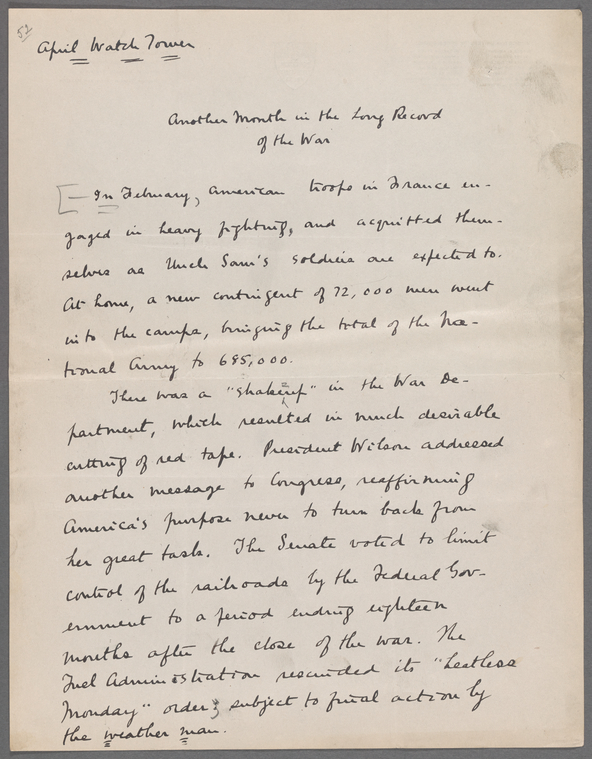 52
April Watch Tower
Another Month in the Long Record
of the War
In February, American troops in France en-
gaged in heavy fighting, and acquitted them-
selves as Uncle Sam's soldiers are expected to.
At home, a new contingent of 72,000 men went
into the camps, bringing the total of the Na-
tional Army to 685,000.
There was a "shake-up" in the War De-
partment, which resulted in much desirable
cutting of red tape. President Wilson addressed
another message to Congress, reaffirming
America's purpose never to turn back from
her great task. The Senate voted to limit
control of the railroads by the Federal Gov-
ernment to a period ending eighteen
months after the close of the war. The
Fuel Administration rescinded its "heatless
Monday" order; subject to final action by
the weather man.